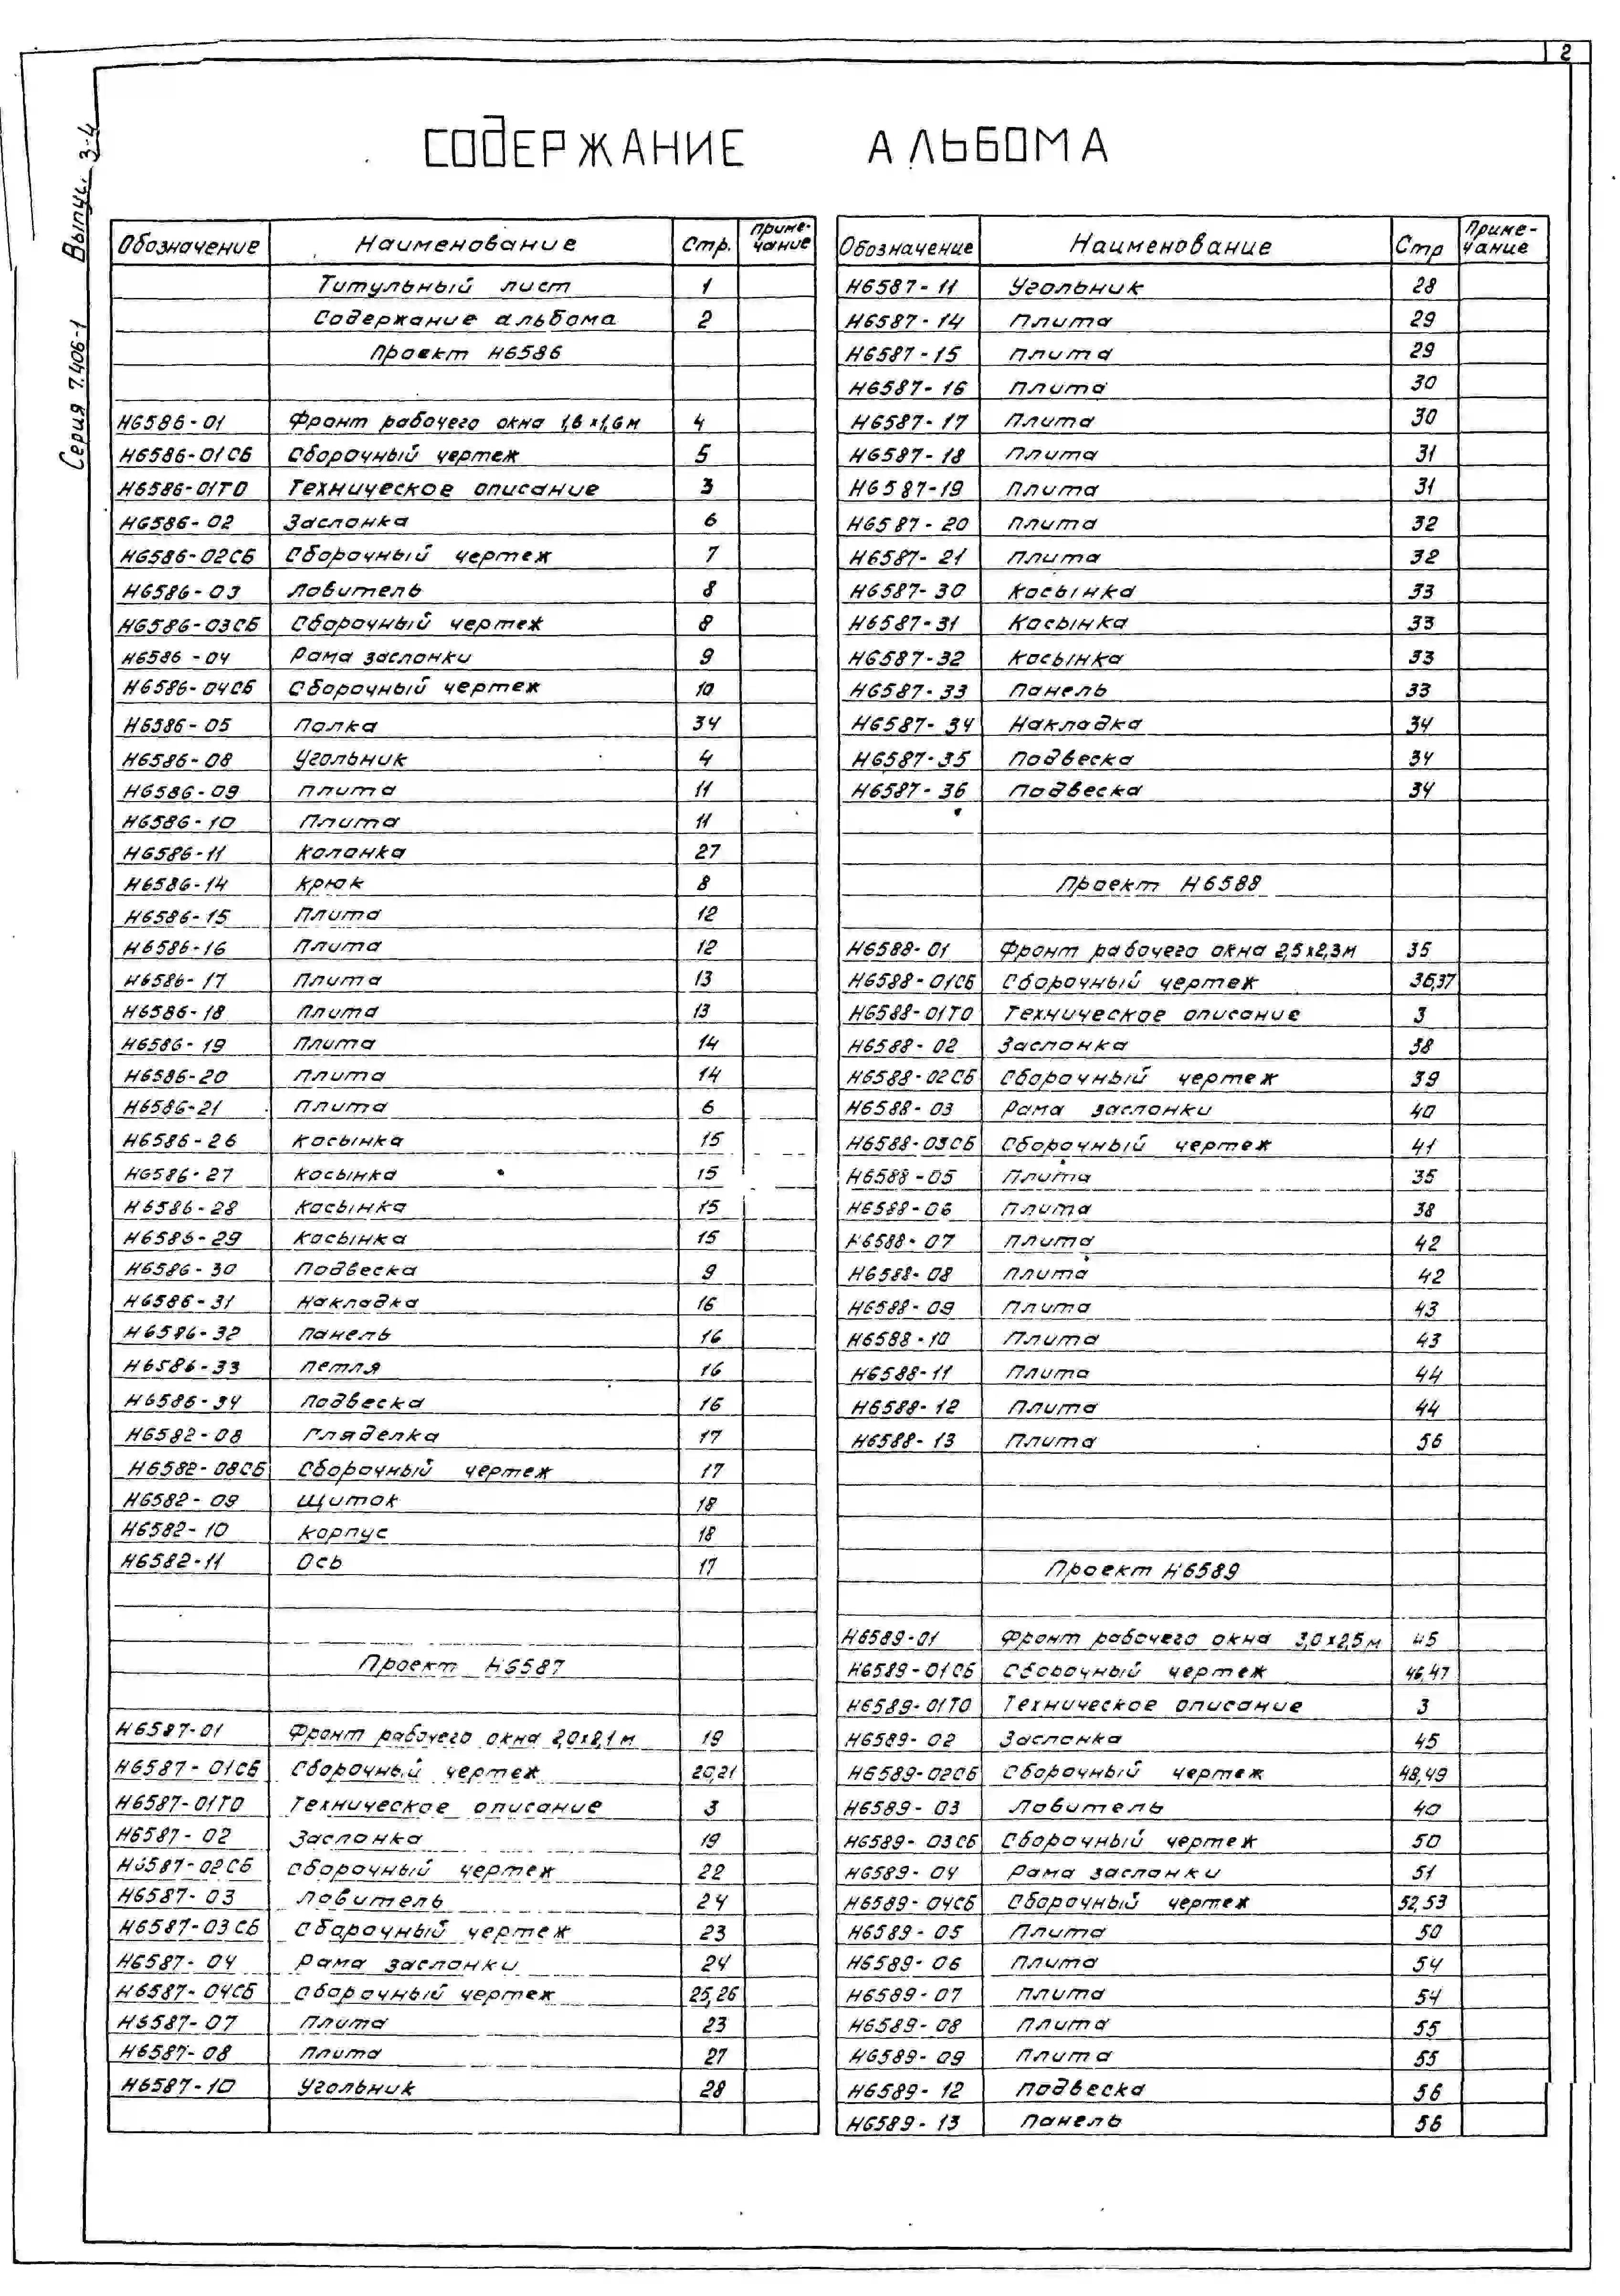 2
Серия 7.406-1 Выпус. 3-4
СОДЕРЖАНИЕ АЛЬБОМА
Обозначение Наименование Стр. Примечание
Титульный лист 1
Содержание альбома 2
Проект Н6586
Н6586-01 Фронт рабочего окна 1,6х1,6м 4
Н6586-01СБ Сборочный чертеж 5
Н6586-01ТО Техническое описание 3
Н6586-02 Заслонка 6
Н6586-02СБ Сборочный чертеж 7
Н6586-03 Ловитель 8
Н6586-03СБ Сборочный чертеж 8
Н6586-04 Рама заслонки 9
Н6586-04СБ Сборочный чертеж 10
Н6586-05 Полка 34
Н6586-08 Угольник 4
Н6586-09 Плита 11
Н6586-10 Плита 11
Н6586-11 Колонка 27
Н6586-14 Крюк 8
Н6586-15 Плита 12
Н6586-16 Плита 12
Н6586-17 Плита 13
Н6586-18 Плита 13
Н6586-19 Плита 14
Н6586-20 Плита 14
Н6586-21 Плита 6
Н6586-26 Косынка 15
Н6586-27 Косынка 15
Н6586-28 Косынка 15
Н6586-29 Косынка 15
Н6586-30 Подвеска 9
Н6586-31 Накладка 16
Н6586-32 Панель 16
Н6586-33 Петля 16
Н6586-34 Подвеска 16
Н6582-08 Гляделка 17
Н6582-08СБ Сборочный чертеж 17
Н6582-09 Щиток 18
Н6582-10 Корпус 18
Н6582-11 Ось 17
Проект Н6587
Н6587-01 Фронт рабочего окна 2,0х2,1м 19
Н6587-01СБ Сборочный чертеж 20,21
Н6587-01ТО Техническое описание 3
Н6587-02 Заслонка 19
Н6587-02СБ Сборочный чертеж 22
Н6587-03 Ловитель 24
Н6587-03СБ Сборочный чертеж 23
Н6587-04 Рама заслонки 24
Н6587-04СБ Сборочный чертеж 25,26
Н6587-07 Плита 23
Н6587-08 Плита 27
Н6587-10 Угольник 28
Обозначение Наименование Стр Примечание
Н6587-11 Угольник 28
Н6587-14 Плита 29
Н6587-15 Плита 29
Н6587-16 Плита 30
Н6587-17 Плита 30
Н6587-18 Плита 31
Н6587-19 Плита 31
Н6587-20 Плита 32
Н6587-21 Плита 32
Н6587-30 Косынка 33
Н6587-31 Косынка 33
Н6587-32 Косынка 33
Н6587-33 Панель 33
Н6587-34 Накладка 34
Н6587-35 Подвеска 34
Н6587-36 Подвеска 34
Проект Н6588
Н6588-01 Фронт рабочего окна 2,5х2,3м 35
Н6588-01СБ Сборочный чертеж 36,37
Н6588-01ТО Техническое описание 3
Н6588-02 Заслонка 38
Н6588-02СБ Сборочный чертеж 39
Н6588-03 Рама заслонки 40
Н6588-03СБ Сборочный чертеж 41
Н6588-05 Плита 35
Н6588-06 Плита 38
Н6588-07 Плита 42
Н6588-08 Плита 42
Н6588-09 Плита 43
Н6588-10 Плита 43
Н6588-11 Плита 44
Н6588-12 Плита 44
Н6588-13 Плита 56
Проект Н6589
Н6589-01 Фронт рабочего окна 3,0х2,5м 45
Н6589-01СБ Сборочный чертеж 46,47
Н6589-01ТО Техническое описание 3
Н6589-02 Заслонка 45
Н6589-02СБ Сборочный чертеж 48,49
Н6589-03 Ловитель 40
Н6589-03СБ Сборочный чертеж 50
Н6589-04 Рама заслонки 51
Н6589-04СБ Сборочный чертеж 52,53
Н6589-05 Плита 50
Н6589-06 Плита 54
Н6589-07 Плита 54
Н6589-08 Плита 55
Н6589-09 Плита 55
Н6589-12 Подвеска 56
Н6589-13 Панель 56